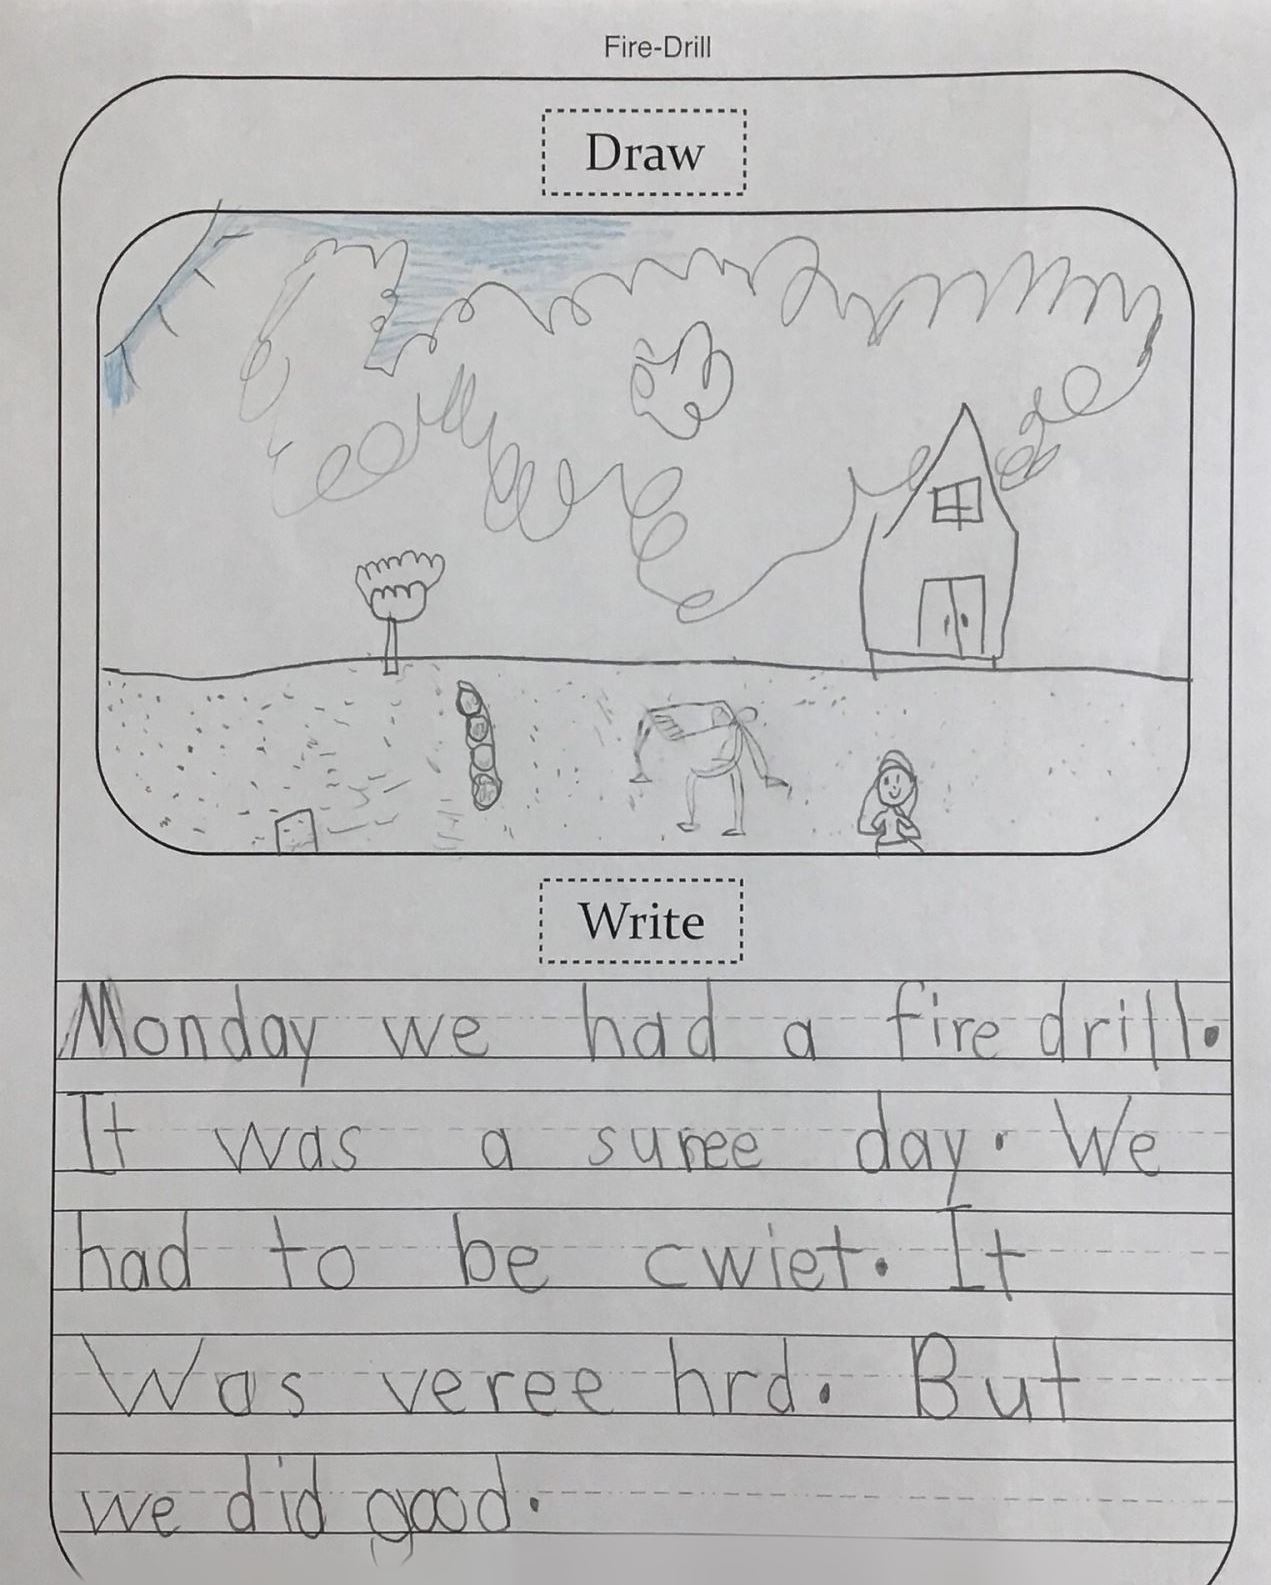 Fire-Drill
Draw
Write
Monday we had a fire drill.
It was a sunee day. We
had to be cwiet. It
Was veree hrd. But
we did good.